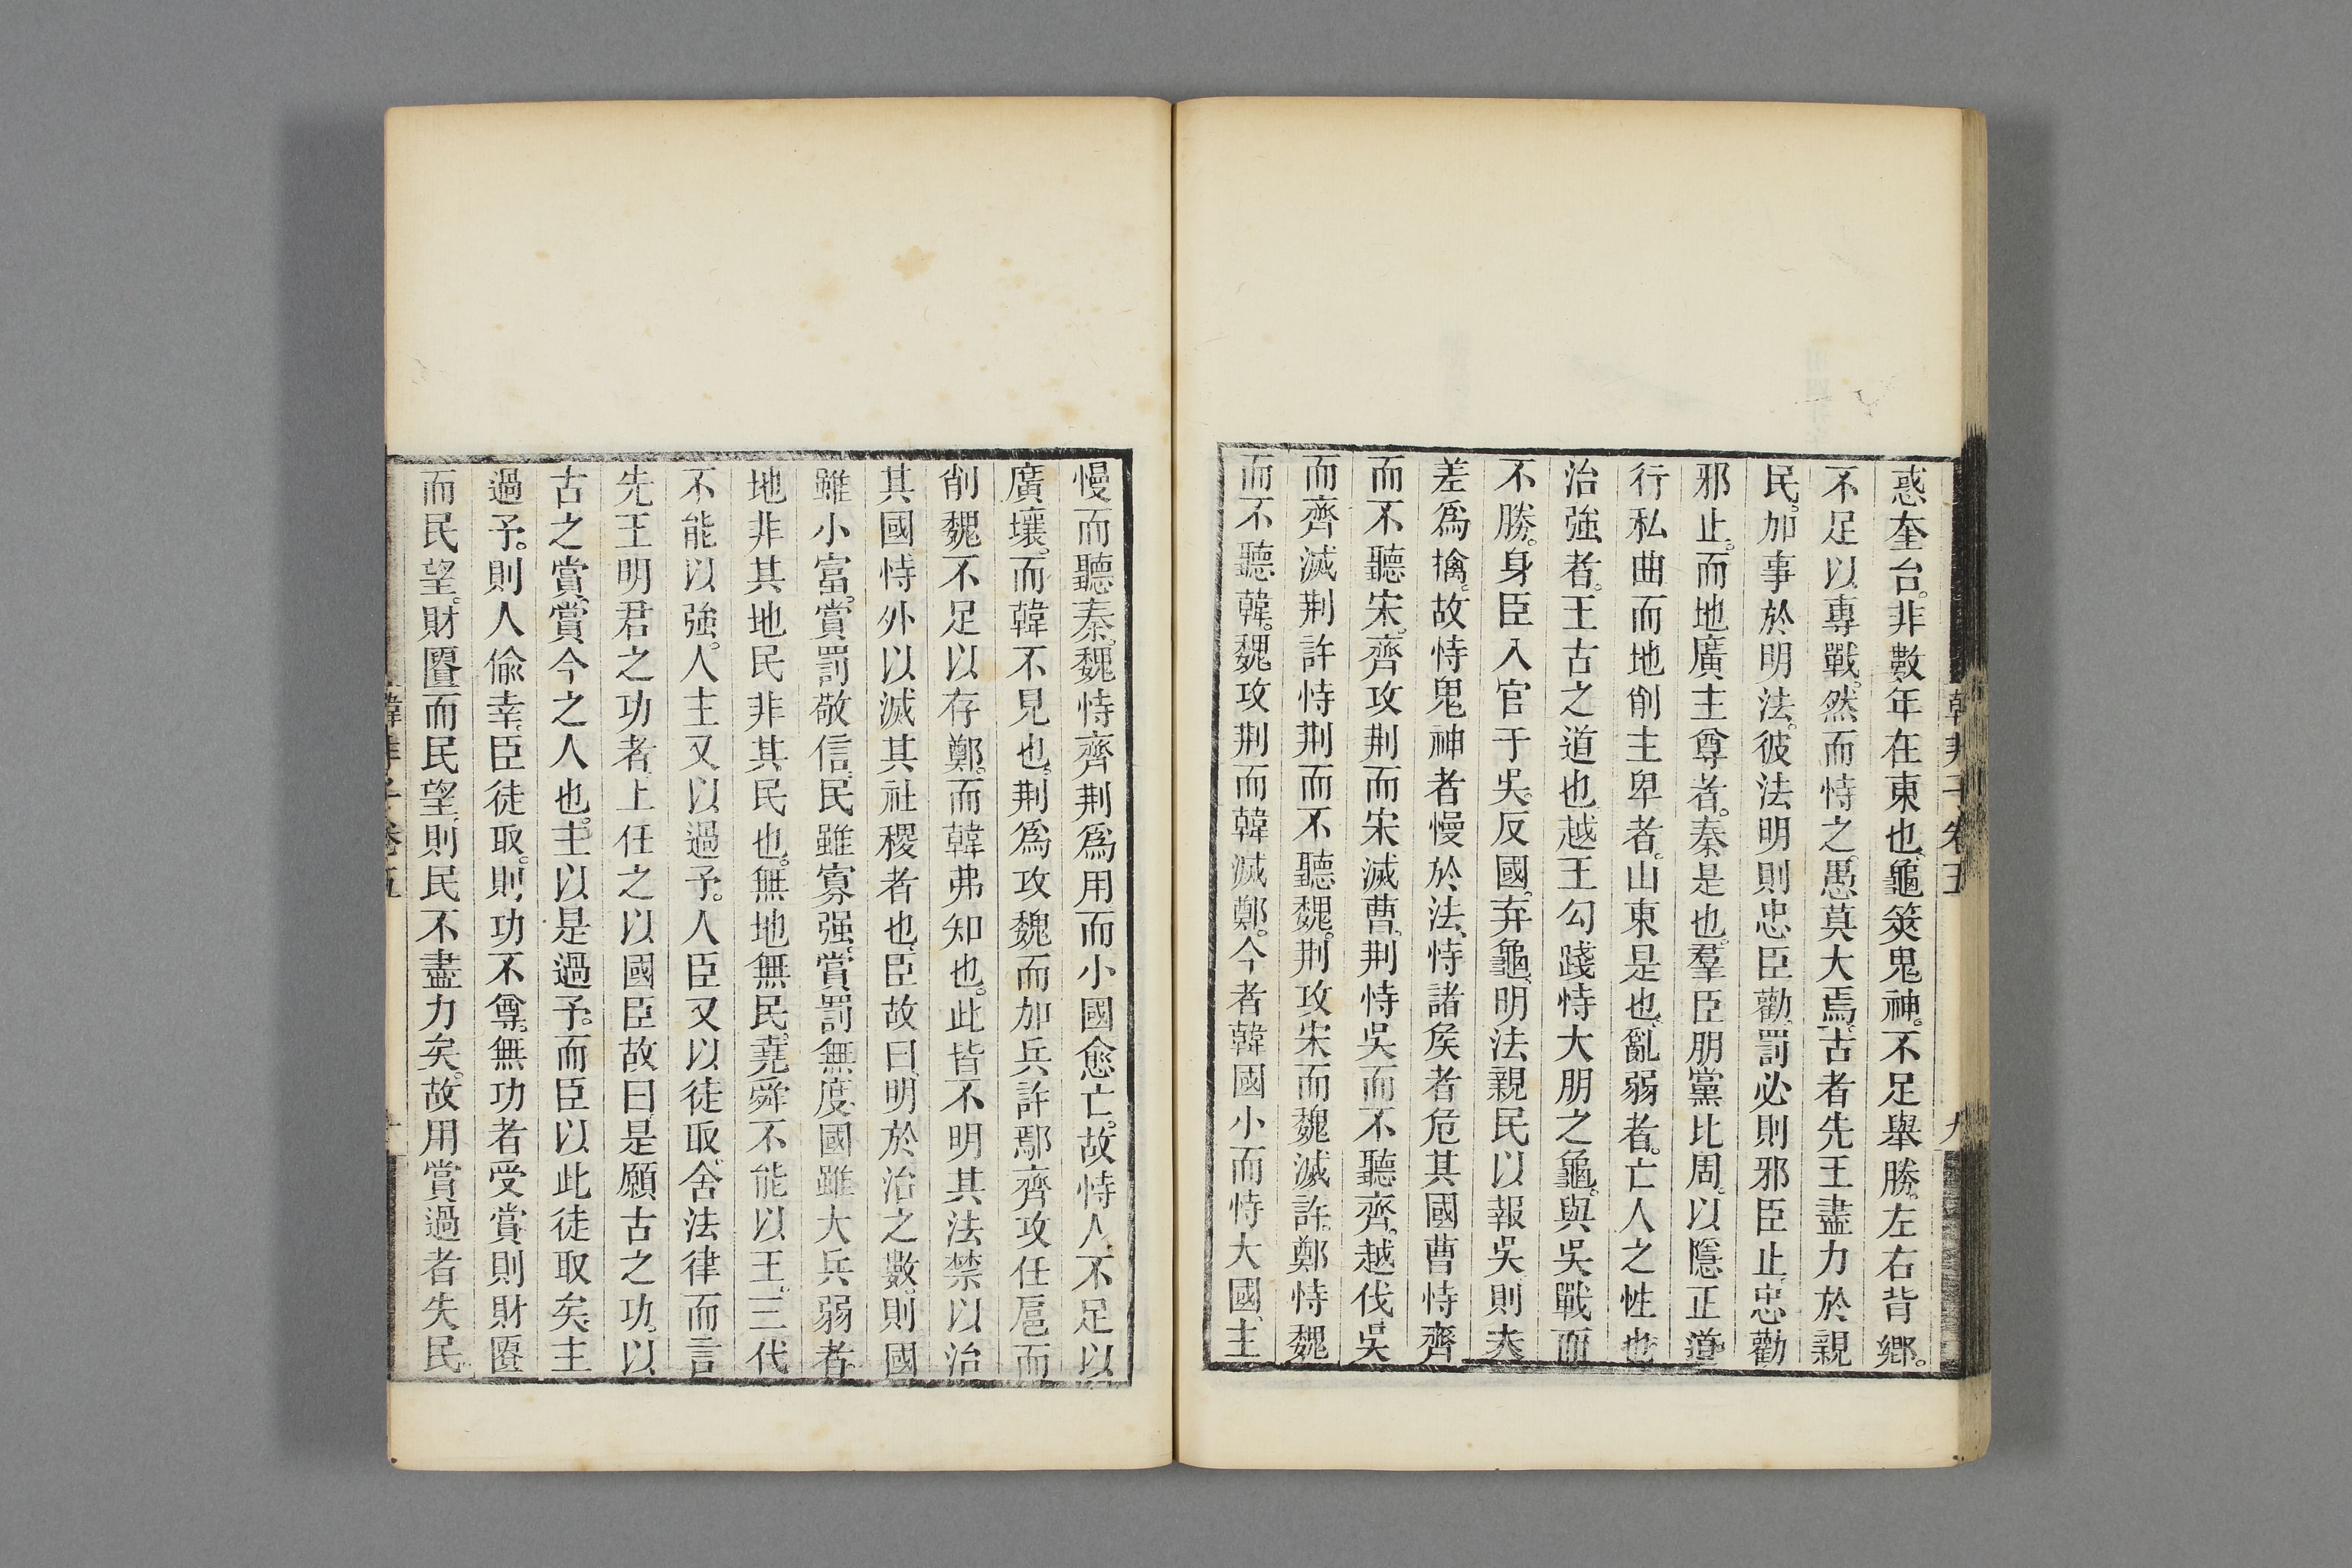 韓非子卷五
九
惑奎台。非數年在東也、龜筴鬼神。不足舉勝。左右背鄉。
不足以專戰。然而恃之。愚莫大焉。古者先王盡力於親
民。加事於明法。彼法明則忠臣勸、罰必則邪臣止、忠勸
邪止。而地廣主尊者。秦是也。羣臣朋黨比周。以隱正道
行私曲而地削主卑者。山東是也、亂弱者。亡人之性也
治強者。王古之道也、越王勾踐恃大朋之龜。與吳戰而
不勝。身臣入官于吳。反國、弃龜、明法親民以報吳則夫
差爲擒。故恃鬼神者慢於法、恃諸矦者危其國曹恃齊
而不聽宋。齊攻荆而宋滅曹。荆恃吳而不聽齊。越伐吳
而齊滅荆許恃荆而不聽魏。荆攻宋而魏滅許。鄭恃魏
而不聽韓。魏攻荆而韓滅鄭。今者韓國小而恃大國、主
慢而聽秦。魏恃齊荆爲用而小國愈亡。故恃人不足以
廣壤。而韓不見也。荆爲攻魏而加兵許鄢齊攻任扈而
削魏不足以存鄭。而韓弗知也。此皆不明其法禁以治
其國恃外以滅其社稷者也、臣故曰、明於治之數。則國
雖小富。賞罰敬信。民雖寡强。賞罰無度、國雖大兵弱者、
地非其地民非其民也。無地無民。堯舜不能以王。三代
不能以強。人主又以過予。人臣又以徒取。舍法律而言
先王明君之功者、上任之以國臣故曰、是願古之功。以
古之賞、賞今之人也。主以是過予。而臣以此徒取矣、主
過予。則人偷幸、臣徒取。則功不尊。無功者受賞則財匱
而民望。財匱而民望、則民不盡力矣。故用賞過者失民
韓非子卷五